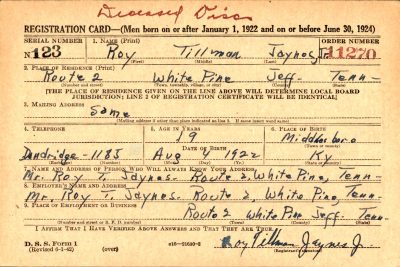 Deceased Disc
REGISTRATION CARD—(Men born on or after January 1, 1922 and on or before June 30, 1924)
SERIAL NUMBER 1. NAME (Print) ORDER NUMBER
N 123 Roy Tillman Jaynes Jr. 11270
(First) (Middle) (Last)
2. PLACE OF RESIDENCE (Print)
Route 2 White Pine Jeff. Tenn
(Number and street) (Town, township, village, or city) (County) (State)
[THE PLACE OF RESIDENCE GIVEN ON THE LINE ABOVE WILL DETERMINE LOCAL BOARD
JURISDICTION; LINE 2 OF REGISTRATION CERTIFICATE WILL BE IDENTICAL]
3. MAILING ADDRESS
Same
[Mailing address if other than place indicated on line 2. If same, insert word same]
4. TELEPHONE 5. AGE IN YEARS 6. PLACE OF BIRTH
19 Middlesboro
DATE OF BIRTH
Dandridge-1185 Aug 1922 Ky
(Exchange) (Number) (Mo.) (Day) (Yr.) (State or country)
7. NAME AND ADDRESS OF PERSON WHO WILL ALWAYS KNOW YOUR ADDRESS
Mr. Roy T. Jaynes. Route 2, White Pine, Tenn.
8. EMPLOYER'S NAME AND ADDRESS
Mr. Roy T. Jaynes. Route 2, White Pine, Tenn.
9. PLACE OF EMPLOYMENT OR BUSINESS
Route 2 White Pine Jeff. Tenn.
(Number and street or R. F. D. number) (Town) (County) (State)
I AFFIRM THAT I HAVE VERIFIED ABOVE ANSWERS AND THAT THEY ARE TRUE.
D. S. S. Form 1
(Revised 6-1-42) (over) Roy Tillman Jaynes Jr.